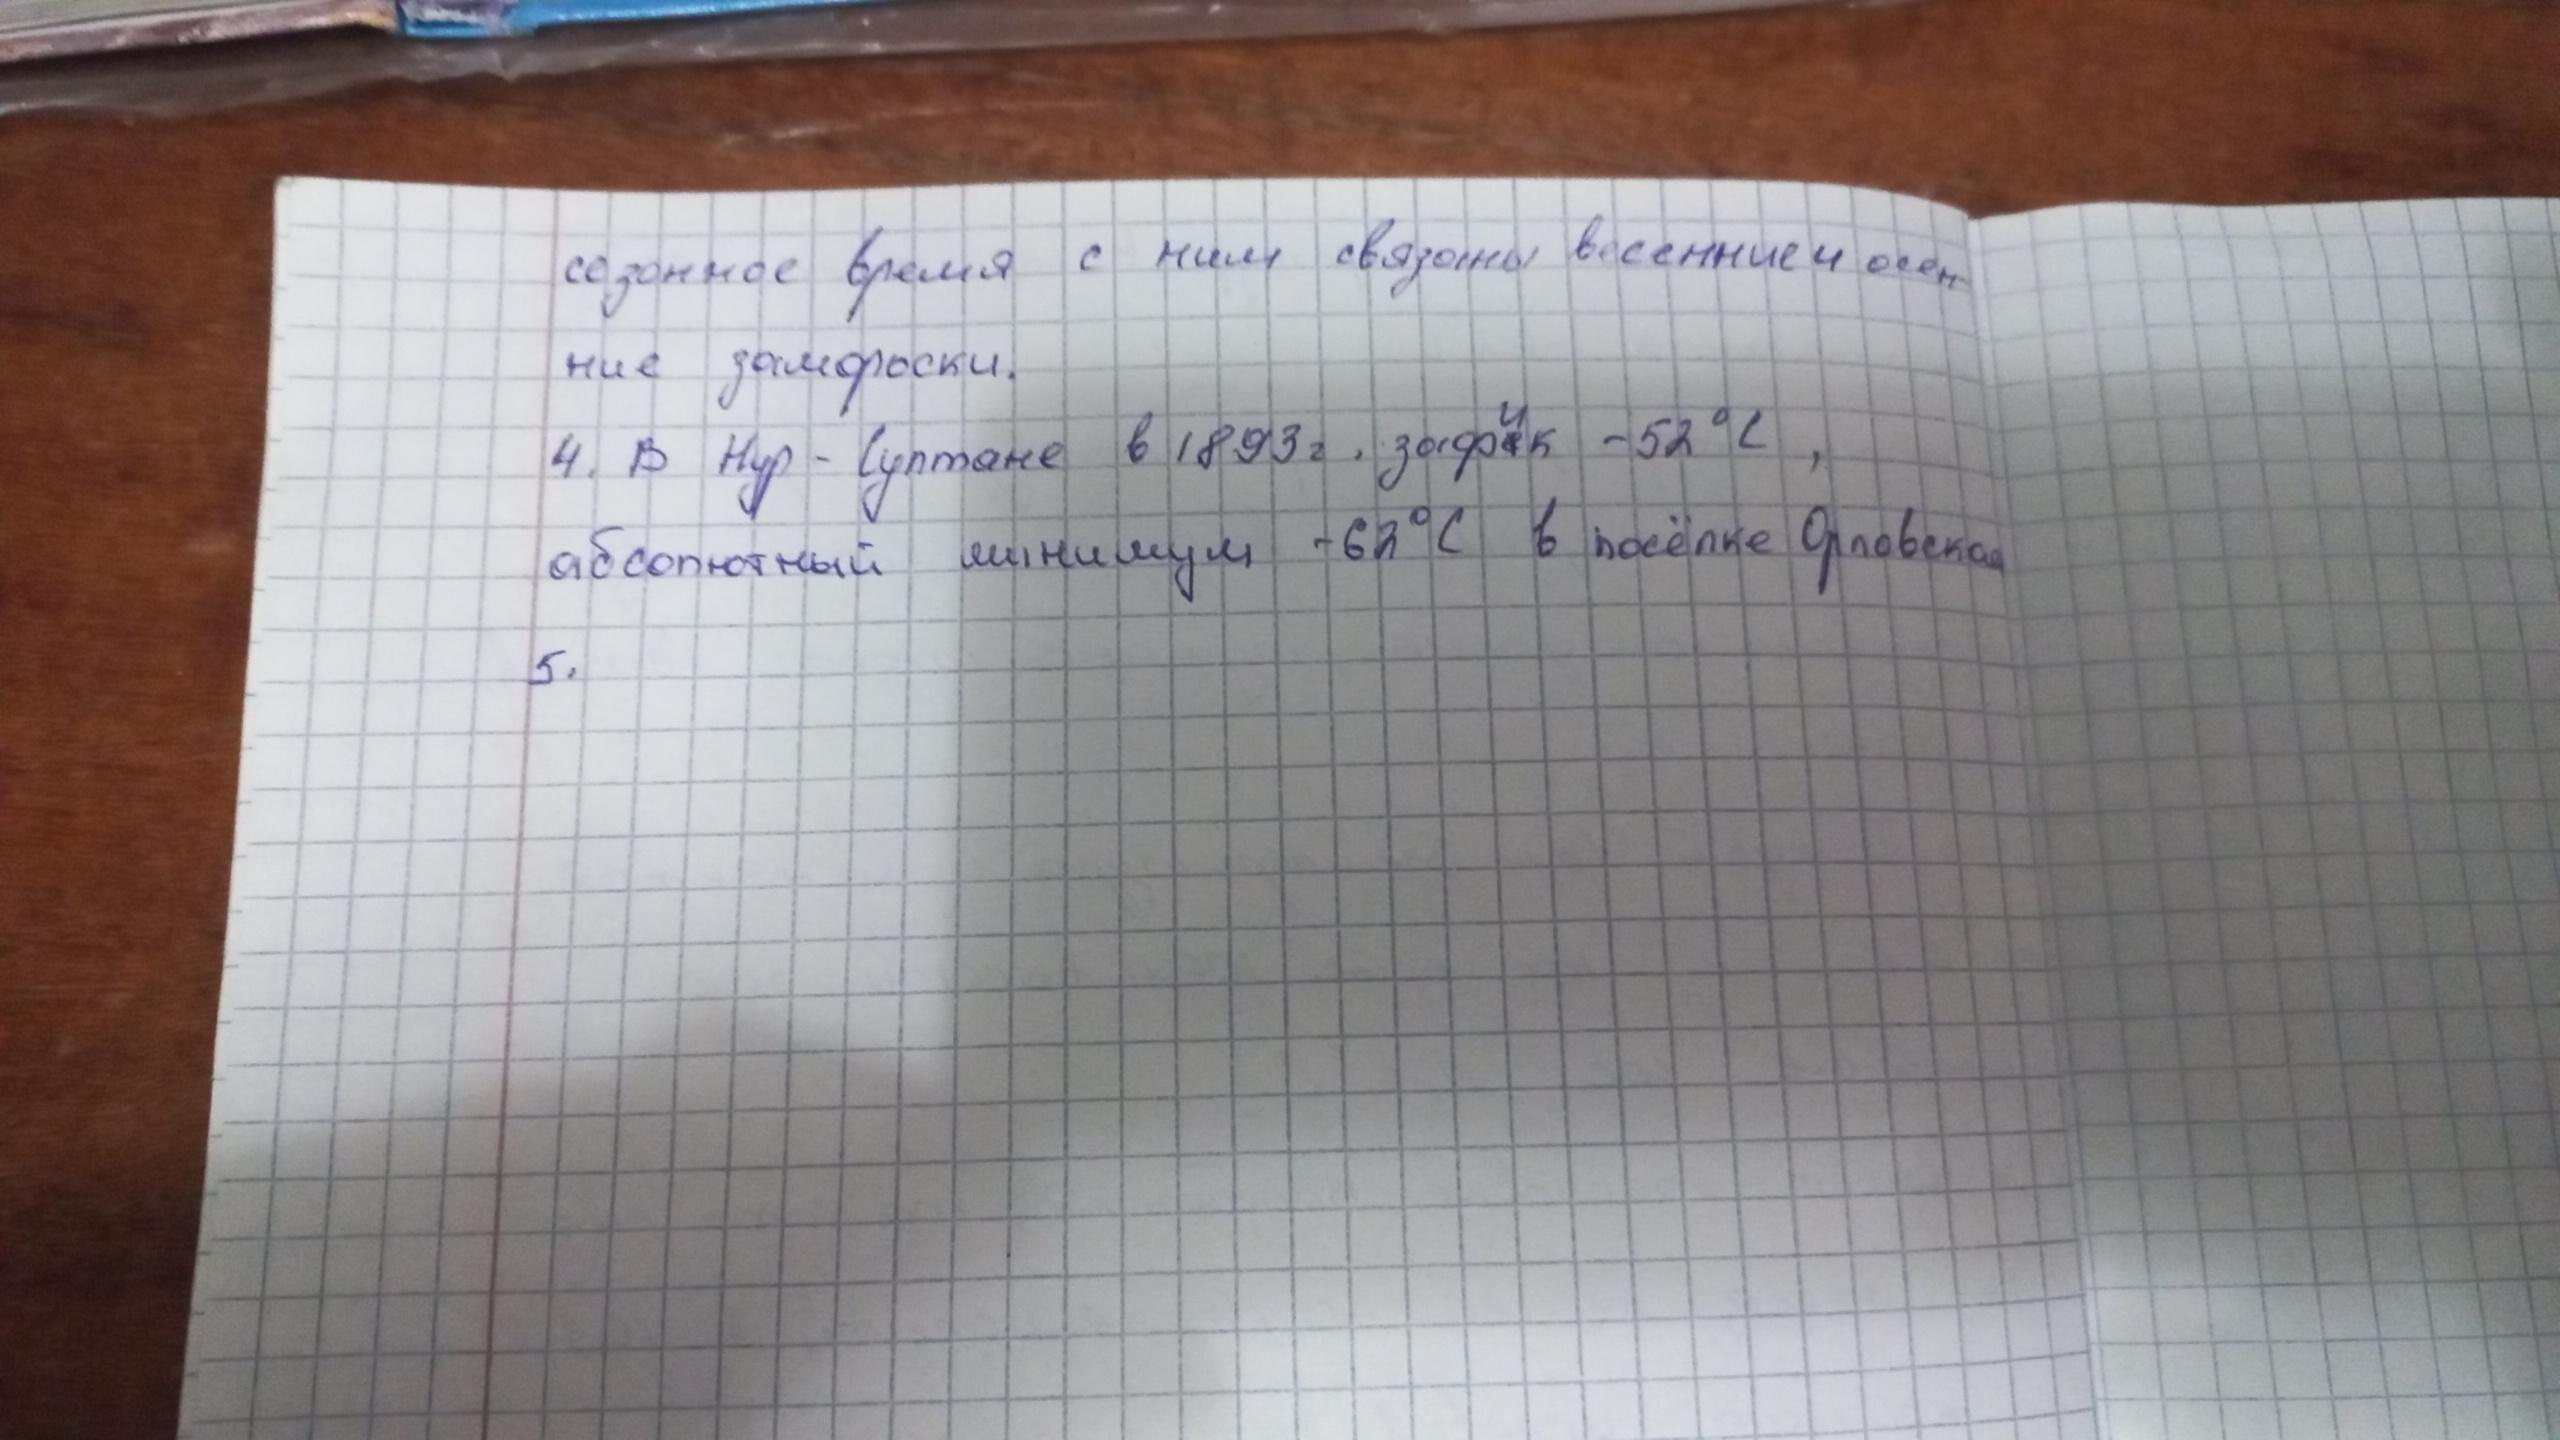 сезонное время с ним связаны весенние и осен
ние замороски.
4. В Нур-Султане в 1893г. зафик -52°С,
абсолютный минимум -62°С в посёлке Орловская
5.